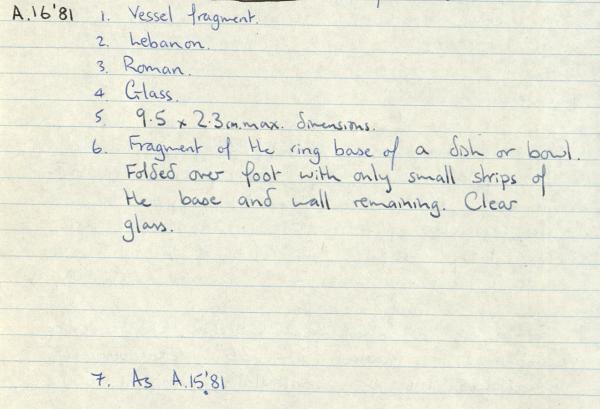 A.16'81 1. Vessel fragment.
2. Lebanon.
3. Roman.
4 Glass.
5 9.5 x 2.3cm.max. dimensions.
6. Fragment of the ring base of a dish or bowl.
Folded over foot with only small strips of
the base and wall remaining. Clear
glass.
7. As A.15'81